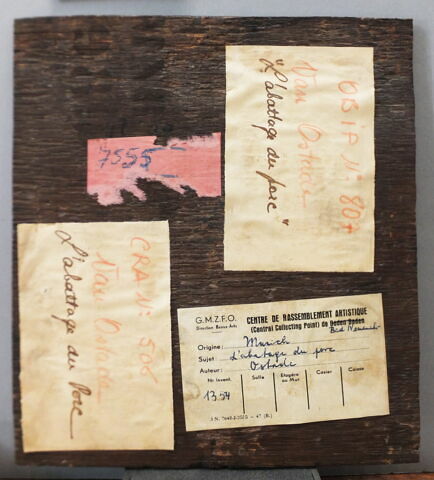 OBIP N° 807
Van Ostade
"L'abattage du porc"
7555
CRA N° 506
Van Ostade
L'abattage du Porc
G.M.Z.F.O.
Direction Beaux-Arts
CENTRE DE RASSEMBLEMENT ARTISTIQUE
(Central Collecting Point) de Baden Baden
Origine: Munich
Sujet L'abatage du porc
Auteur: Ostade
Nr Invent. Salle Etagère ou Mur Casier Caisse
1354